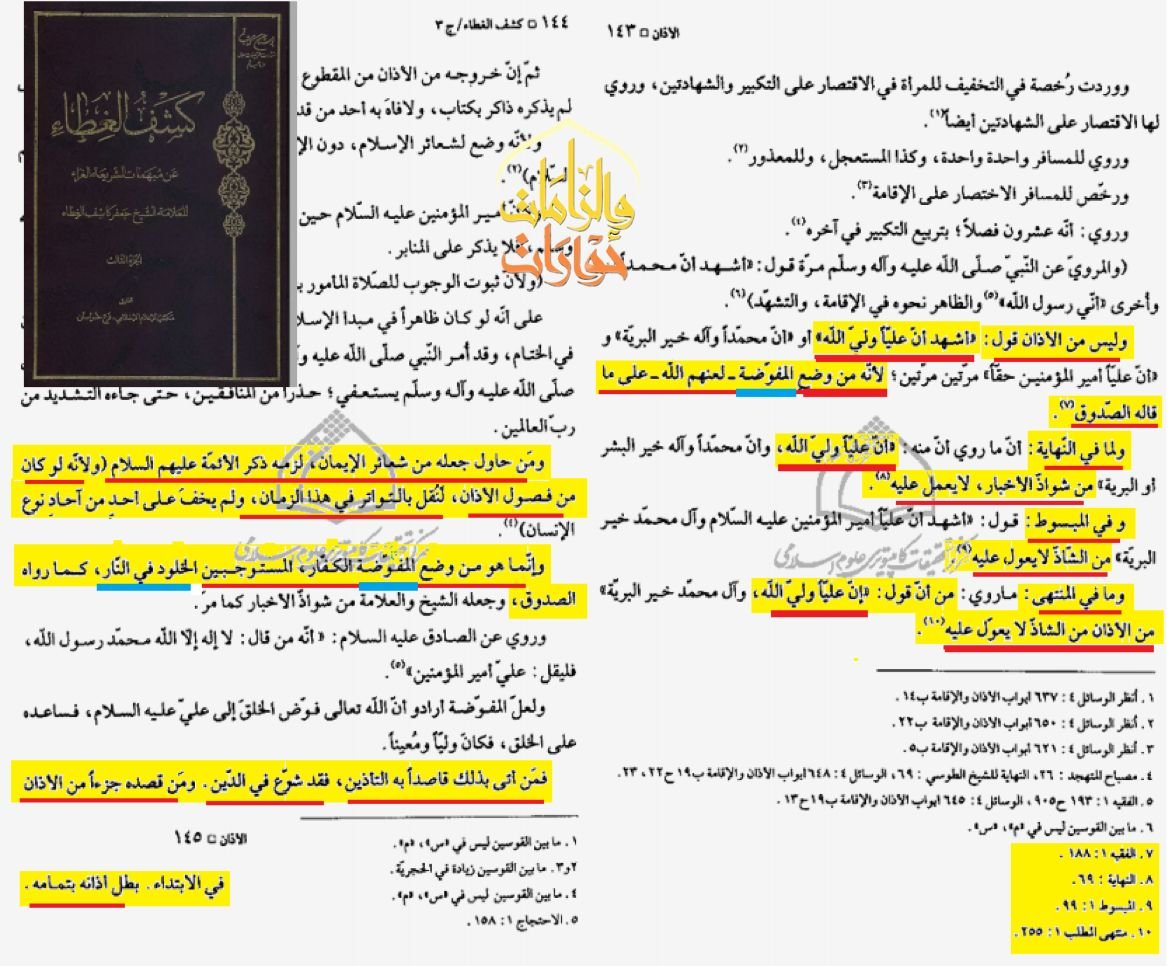 الأذان □ ١٤٣
ووردت رُخصة في التخفيف للمرأة في الاقتصار على التكبير والشهادتين، وروي
لها الاقتصار على الشهادتين أيضاً(١).
وروي للمسافر واحدة واحدة، وكذا المستعجل، وللمعذور(٢).
ورخّص للمسافر الاختصار على الإقامة(٣).
وروي: أنّه عشرون فصلاً؛ بتربيع التكبير في آخره(٤).
(والمرويّ عن النّبيّ صلّى الله عليه وآله وسلّم مرّة قول: «أشهد أنّ محمداً
وأخرى «أنّي رسول الله»(٥) والظاهر نحوه في الإقامة، والتشهّد)(٦).
وليس من الأذان قول: «أشهد أنّ عليّاً وليّ الله» أو «أنّ محمّداً وآله خير البريّة» و
«أنّ عليّاً أمير المؤمنين حقّاً» مرّتين مرّتين؛ لأنّه من وضع المفوّضة ـ لعنهم الله ـ على ما
قاله الصّدوق(٧).
ولما في النّهاية: أنّ ما روي أنّ منه: «أنّ عليّاً وليّ الله، وأنّ محمّداً وآله خير البشر
أو البرية» من شواذّ الأخبار، لا يعمل عليه(٨).
و في المبسوط: قول: «أشهد أنّ عليّاً أمير المؤمنين عليه السّلام وآل محمّد خير
البريّة» من الشاذّ لا يعول عليه(٩).
وما في المنتهى: ما روي: من أنّ قول: «إنّ عليّاً وليّ الله، وآل محمّد خير البريّة»
من الأذان من الشاذّ لا يعوّل عليه(١٠).
١. أنظر الوسائل ٤: ٦٣٧ أبواب الأذان والإقامة ب١٤.
٢. أنظر الوسائل ٤: ٦٥٠ أبواب الأذان والإقامة ب٢٢.
٣. أنظر الوسائل ٤: ٦٢١ أبواب الأذان والإقامة ب٥.
٤. مصباح المتهجد: ٢٦، النهاية للشيخ الطوسي: ٦٩، الوسائل ٤: ٦٤٨ أبواب الأذان والإقامة ب١٩ ح٢٢، ٢٣.
٥. الفقيه ١: ١٩٣ ح٩٠٥، الوسائل ٤: ٦٤٥ أبواب الأذان والإقامة ب١٩ ح١٣.
٦. ما بين القوسين ليس في «م»، «س».
٧. الفقيه ١: ١٨٨.
٨. النهاية: ٦٩.
٩. المبسوط ١: ٩٩.
١٠. منتهى المطلب ١: ٢٥٥.
١٤٤ □ كشف الغطاء/ج ٣
ثمّ إنّ خروجه من الأذان من المقطوع
لم يذكره ذاكر بكتاب، ولا فاه به أحد من
ولأنّه وضع لشعائر الإسلام، دون
السّلام)(٢).
أمير المؤمنين عليه السّلام حين
فلا يذكر على المنابر.
(ولأنّ ثبوت الوجوب للصّلاة المأمور
على أنّه لو كان ظاهراً في مبدأ
في الختام، وقد أُمر النّبي صلّى الله عليه
صلّى الله عليه وآله وسلّم يستعفي؛ حذراً من المنافقين، حتى جاءه التشديد من
ربّ العالمين.
ومَن حاول جعله من شعائر الإيمان، لزمه ذكر الأئمّة عليهم السلام (ولأنّه لو كان
من فصول الأذان، لنُقل بالتواتر في هذا الزمان، ولم يخفَ على أحدٍ من آحادِ نوع
الإنسان)(٤).
وإنّما هو من وضع المفوّضة الكفّار، المستوجبين الخلود في النّار، كما رواه
الصدوق، وجعله الشيخ والعلامة من شواذّ الأخبار كما مرّ.
وروي عن الصادق عليه السلام: «أنّه من قال: لا إله إلّا الله محمّد رسول الله،
فليقل: عليّ أمير المؤمنين»(٥).
ولعلّ المفوّضة أرادوا أنّ الله تعالى فوّض الخلق إلى عليّ عليه السلام، فساعده
على الخلق، فكان وليّاً ومُعيناً.
فمَن أتى بذلك قاصداً به التأذين، فقد شرّع في الدّين. ومَن قصده جزءاً من الأذان
١. ما بين القوسين ليس في «س»، «م».
٢و٣. ما بين القوسين زيادة في الحجريّة.
٤. ما بين القوسين ليس في «س»، «م».
٥. الاحتجاج ١: ١٥٨.
الأذان □ ١٤٥
في الابتداء. بطل أذانه بتمامه.
كشف الغطاء
عن مبهمات الشريعة الغراء
للعلامة الشيخ جعفر كاشف الغطاء
الجزء الثالث
والزامات
حوارات